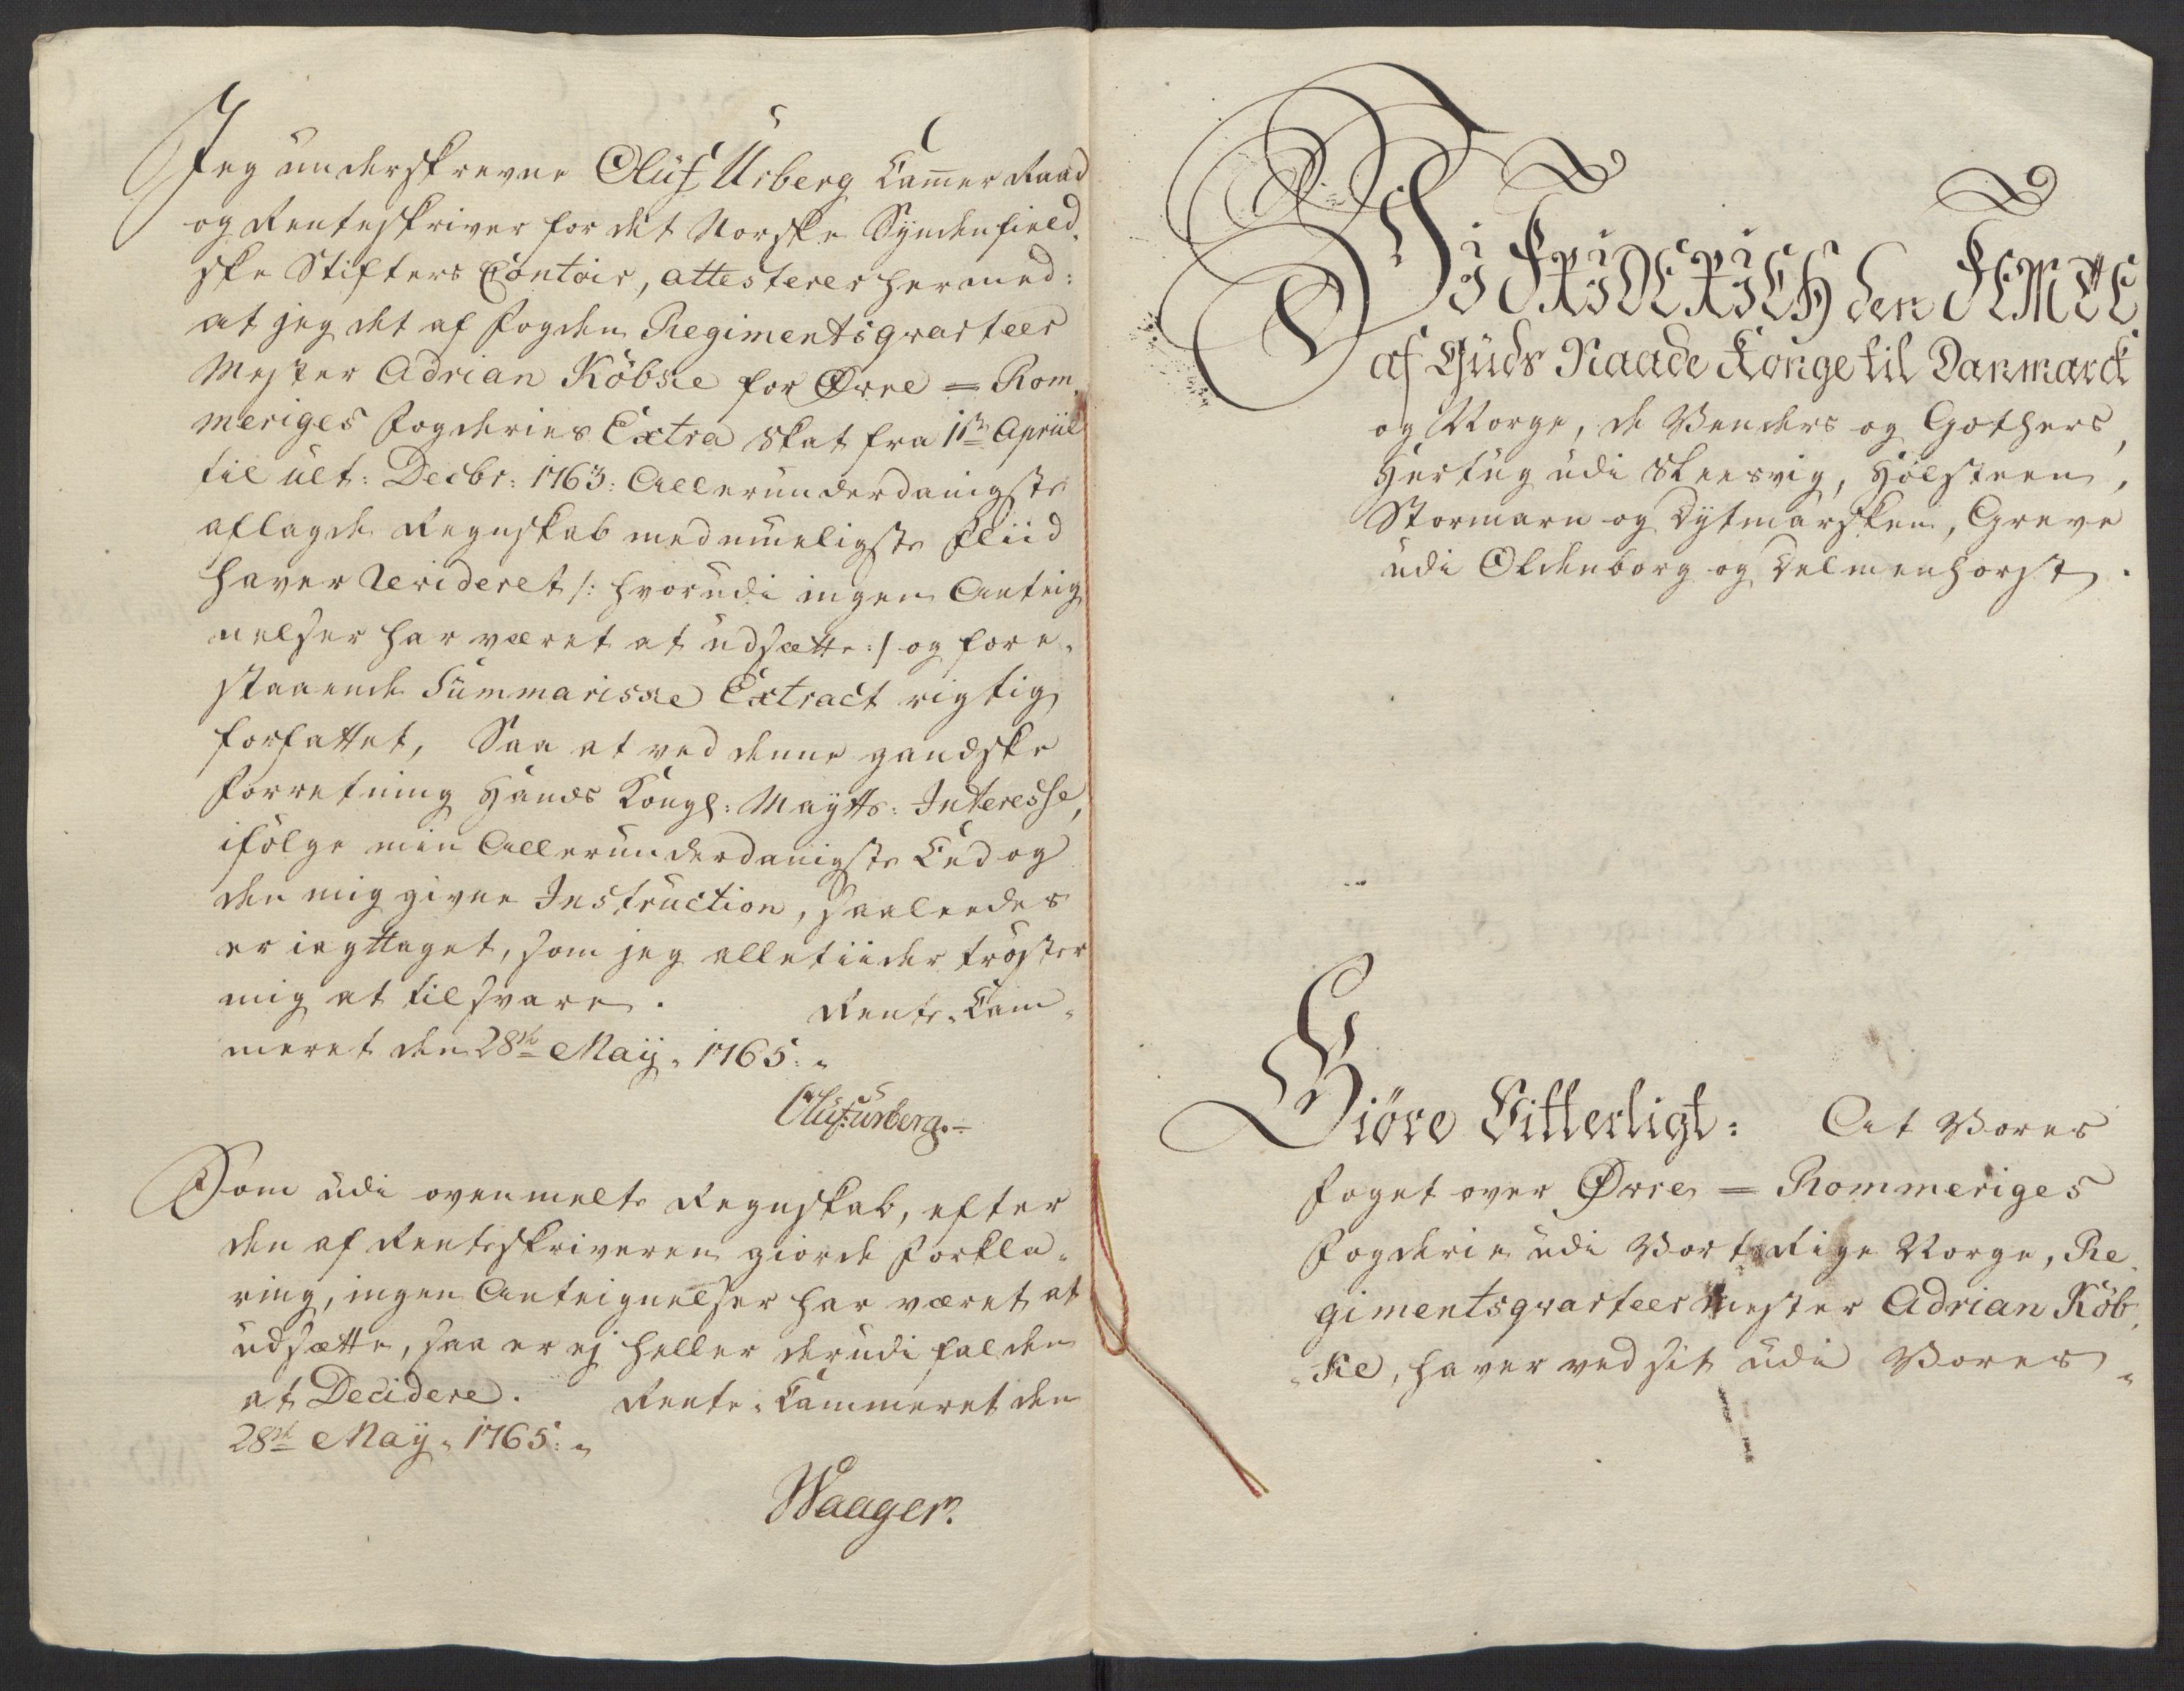 Jeg underskrevne Oluf Urberg Cammer Raad
og Renteskriver for det Norske Syndenfield-
ske Stifters Contoir, attesterer hermed:
at jeg det af Fogden Regimentsqvarteer
Mester Adrian Köbke for Øvre = Rom-
meriges Fogderies Extra Skat fra 1ste Apriil
til ult: Decbr: 1763: Allerunderdanigste
aflagde Regnskab med mueligste Fliid
haver Revideret /: hvorudi ingen Anteig
nelser har været at udsætte :/ og fore-
staaende Summariske Extract rigtig
forfattet, Saa at ved denne gandske
Forretning Hands Kongl: Maytts: Interesse,
ifølge min Allerunderdanigste Eed og
den mig givne Instruction, saaleedes
er iagttaget, som jeg alletiider trøster
mig at tilsvare. Rente-Cam-
meret den 28de Maij 1765:
Oluf Urberg.
Som udi ovenmelte Regnskab, efter
den af Renteskriveren giorde Forkla-
ring, ingen Anteignelser har været at
udsætte, saa er ej heller derudi falden
at Decidere. Rente-Cammeret den
28de Maij 1765:
Waager.
Vi FRIDERICH den FEMTE
af Guds Naade Konge til Danmarck
og Norge, de Venders og Gothers,
Hertug udi Slesvig, Holsteen,
Stormarn og Dytmarsken, Greve
udi Oldenborg og Delmenhorst.
Giöre Vitterligt: At Vores
Foget over Øvre = Rommeriges
Fogderie udi Vort Rige Norge, Re-
gimentsqvarteermester Adrian Köb-
ke, haver ved sit udi Vores